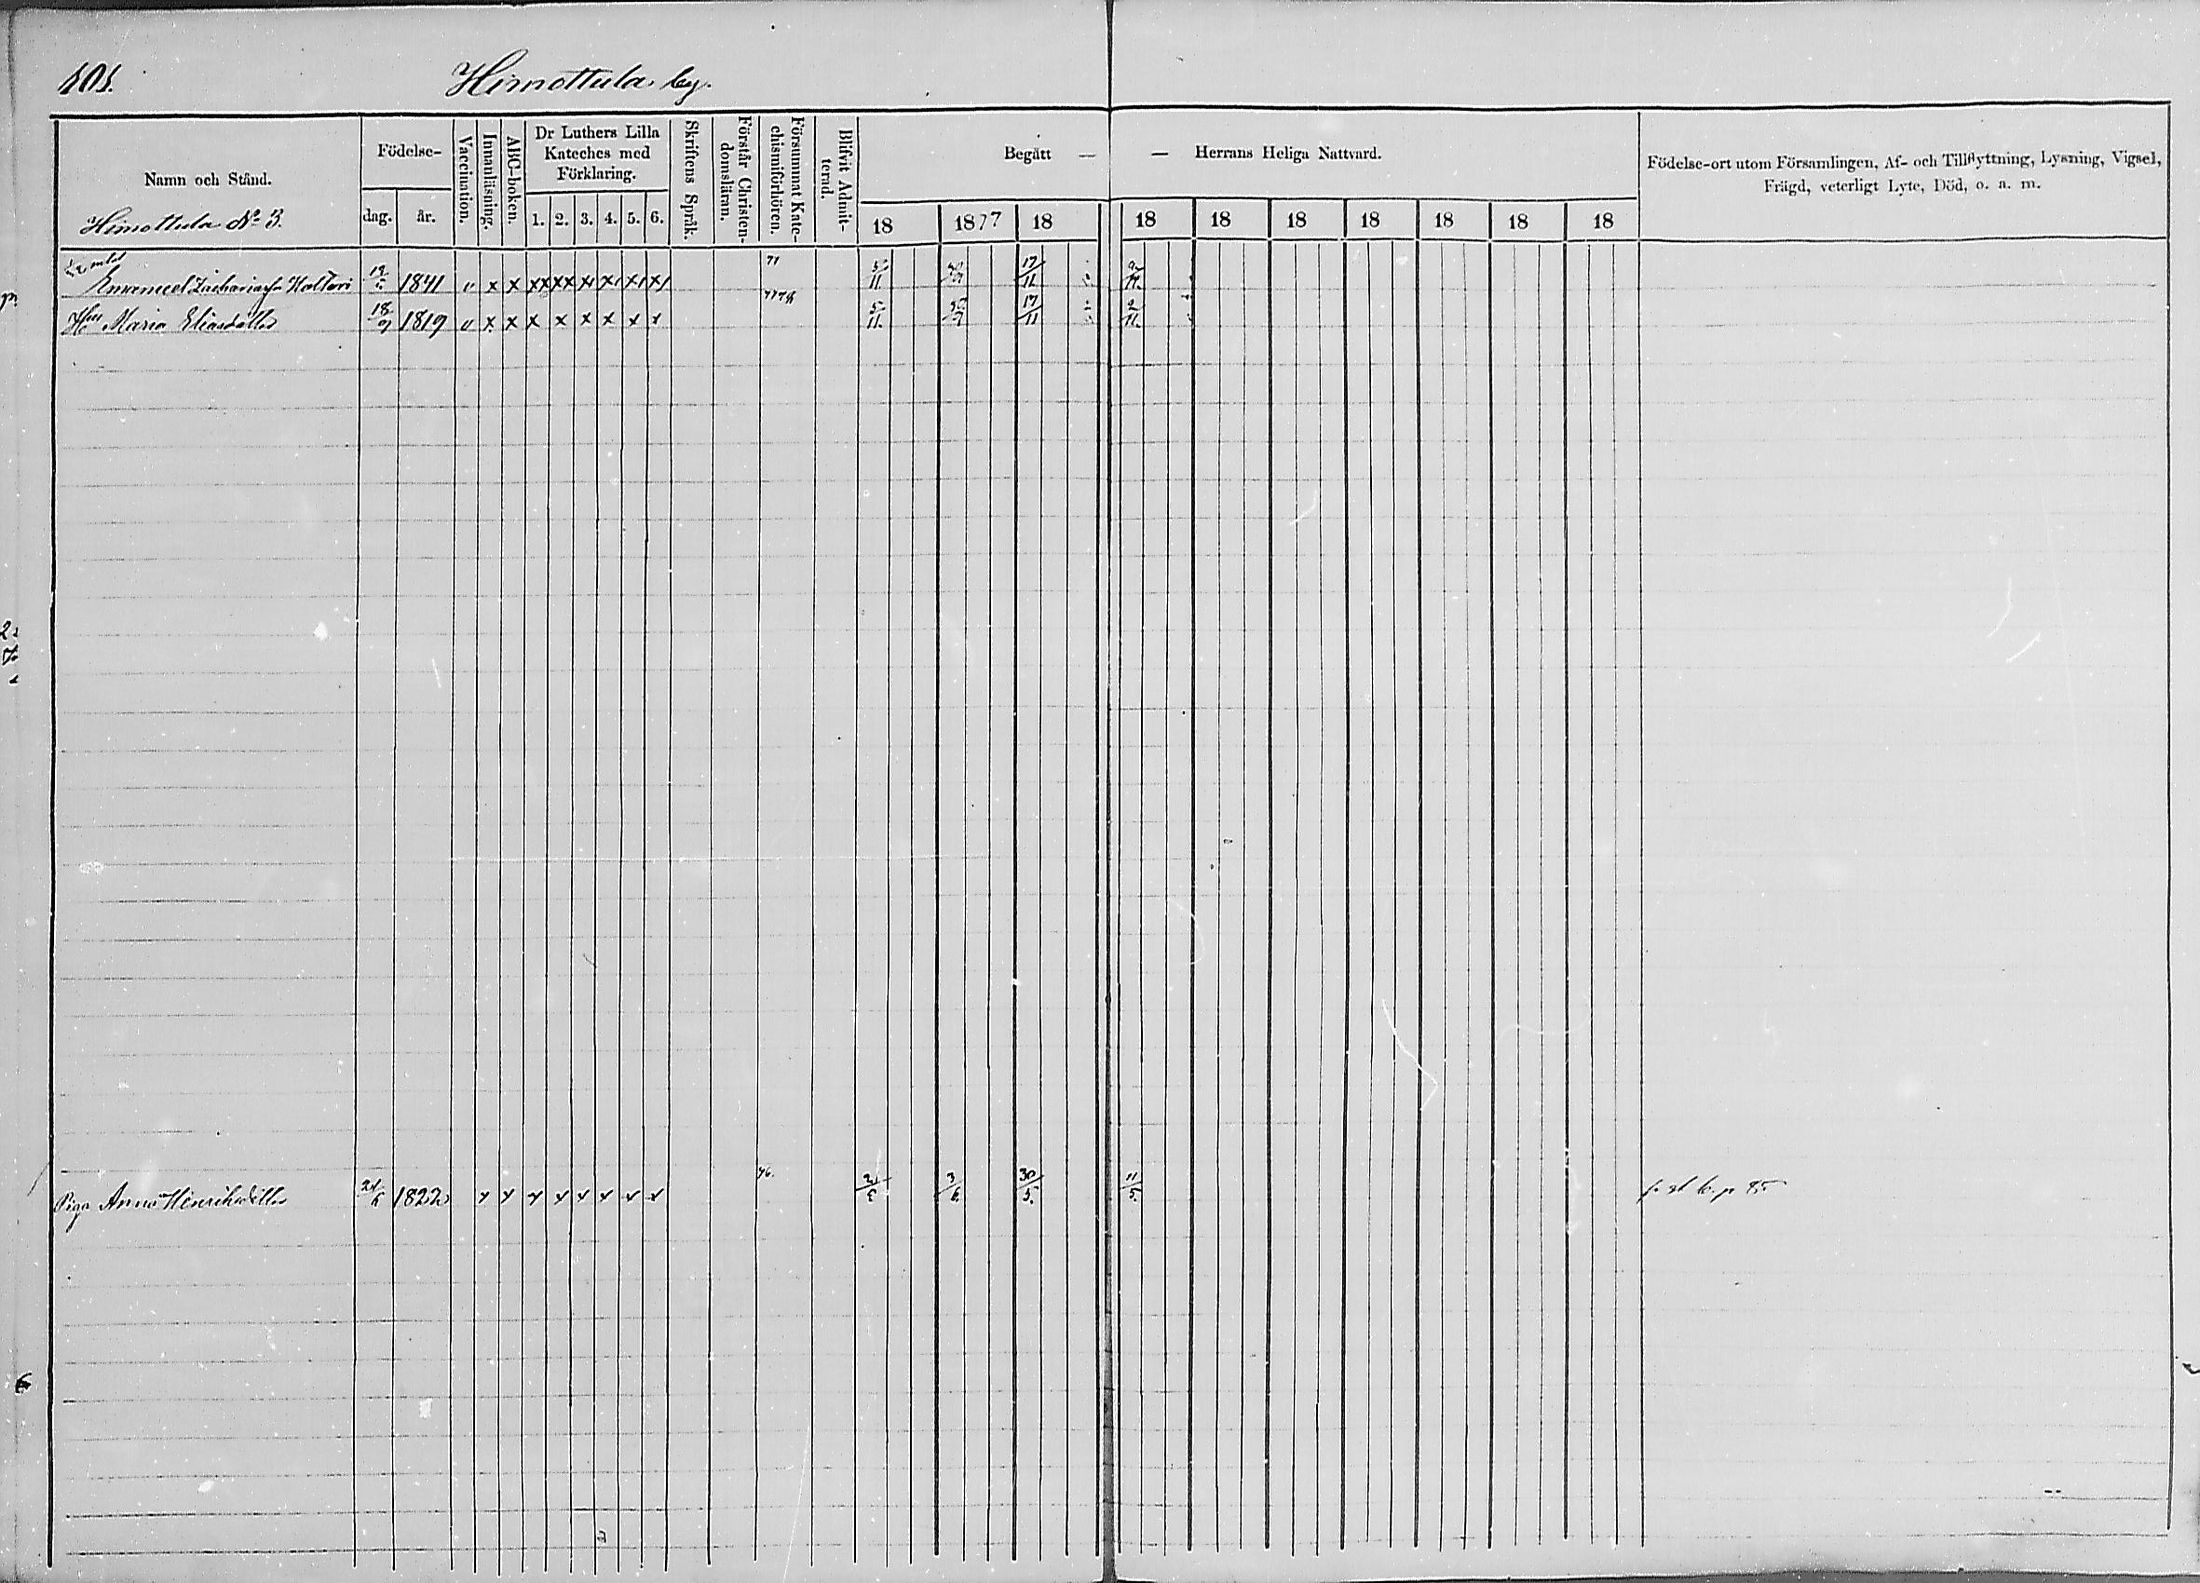 101.
Himottula by.
Namn och Stånd.
Himottula No 3.
Födelse-
dag.
år.
Vaccination.
Innanläsning.
ABC-boken.
Dr Luthers Lilla
Kateches med
Förklaring.
1. 2. 3. 4. 5. 6.
Skriftens Språk.
Förstår Christen-
domsläran.
Försummat Kate-
chismiförhören.
Blifvit Admit-
terad.
Begått — — Herrans Heliga Nattvard.
18 1877 18 18 18 18 18 18 18 18
Födelse-ort utom Församlingen, Af- och Tillflyttning, Lysning, Vigsel,
Frägd, veterligt Lyte, Död, o. a. m.
Zachariass Haltari 1841 v x x xx xx x x x x 71 5/11 17/11 2/11.
Hu Maria Eliasdotter 18/9 1819 v x x x x x x x x 5/11. 17/11 2/11.
Piga Anna Henriksdotter 24/6 1822 x x x x x x x x 76. 3/6. 30/5. 11/5.